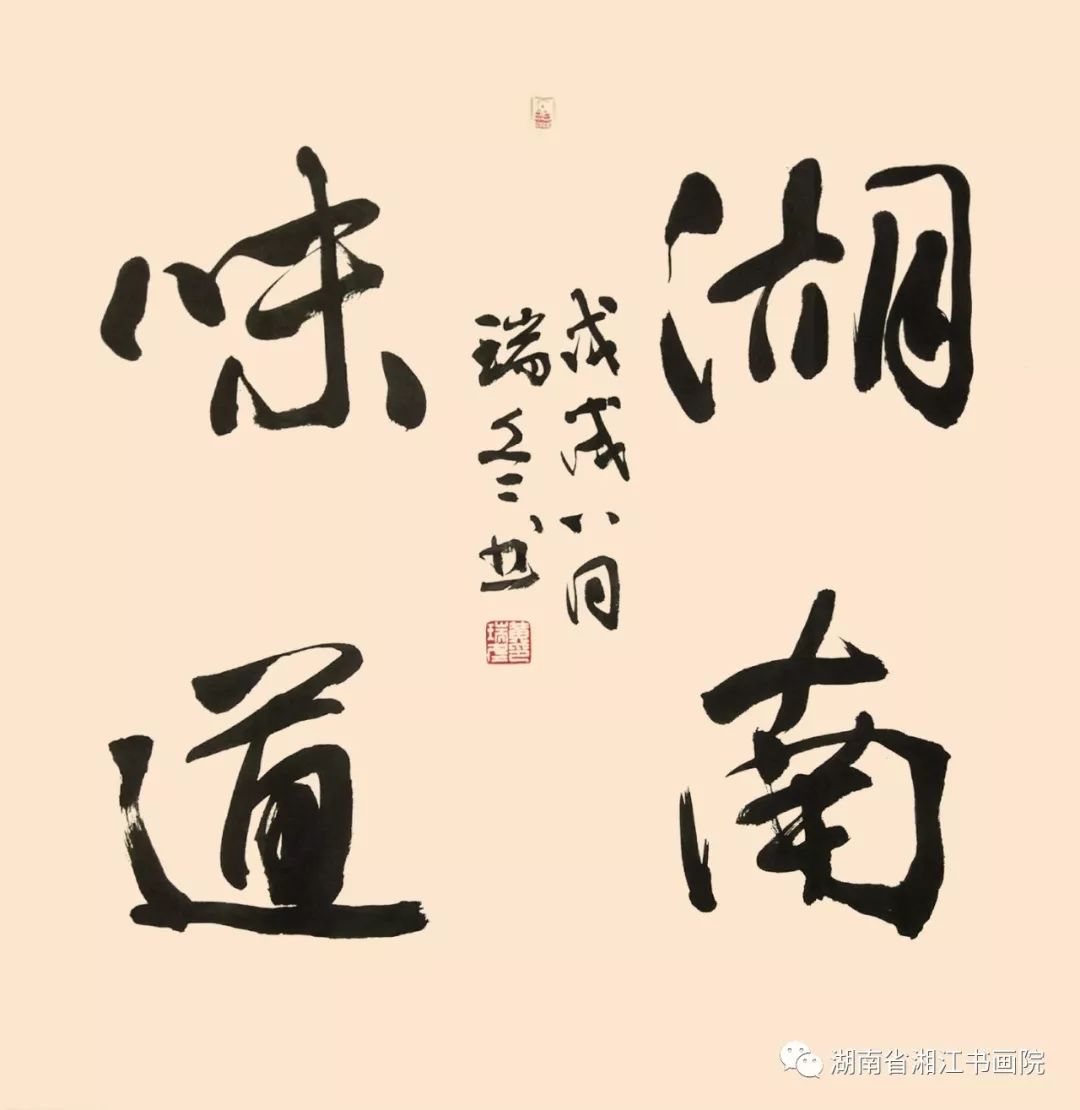 湖南
味道
戊戌八月
瑞 书
湖南省湘江书画院